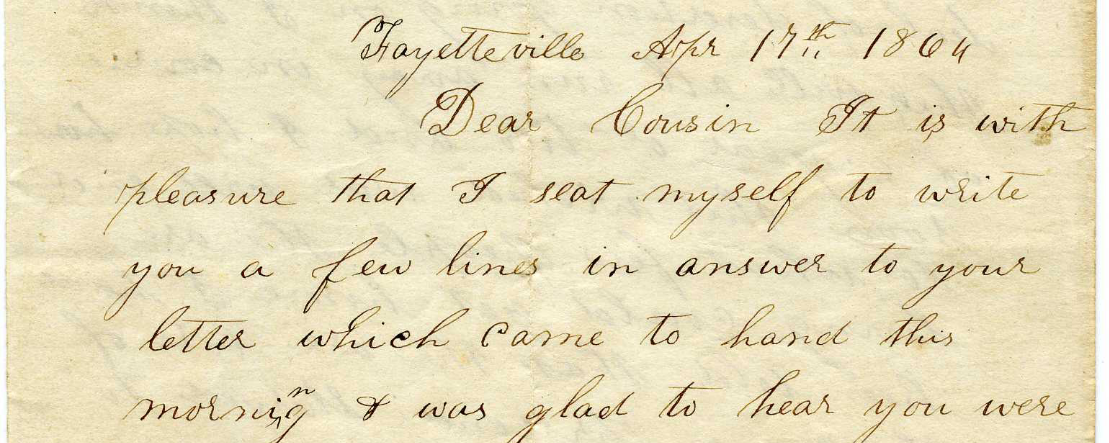 Fayetteville Apr 17th 1864
Dear Cousin It is with
pleasure that I seat myself to write
you a few lines in answer to your
letter which came to hand this
morning & was glad to hear you were